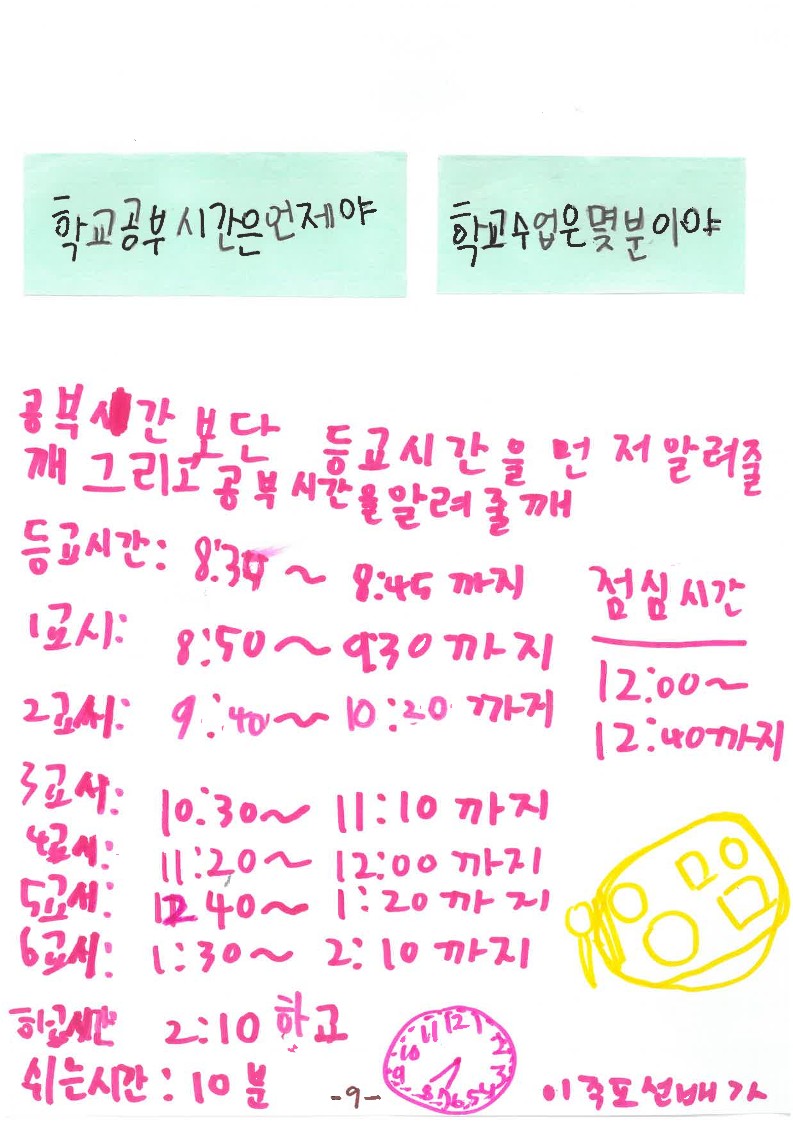 학교공부시간은언제야
학교수업은몇분이야
공부시간 보단 등교시간을 먼저알려줄
깨 그리고 공부시간을알려줄깨
등교시간: 8:30 ~ 8:45 까지
1교시: 8:50 ~ 9:30 까지
2교시: 9:40 ~ 10:20 까지
3교시: 10:30 ~ 11:10 까지
4교시: 11:20 ~ 12:00 까지
5교시: 12 40 ~ 1:20 까지
6교시: 1:30 ~ 2:10 까지
점심시간
12:00 ~
12:40까지
하교시간 2:10 하교
쉬는시간: 10분
11 12 1 2 3 4 5 6 7 8 9 10
-9-